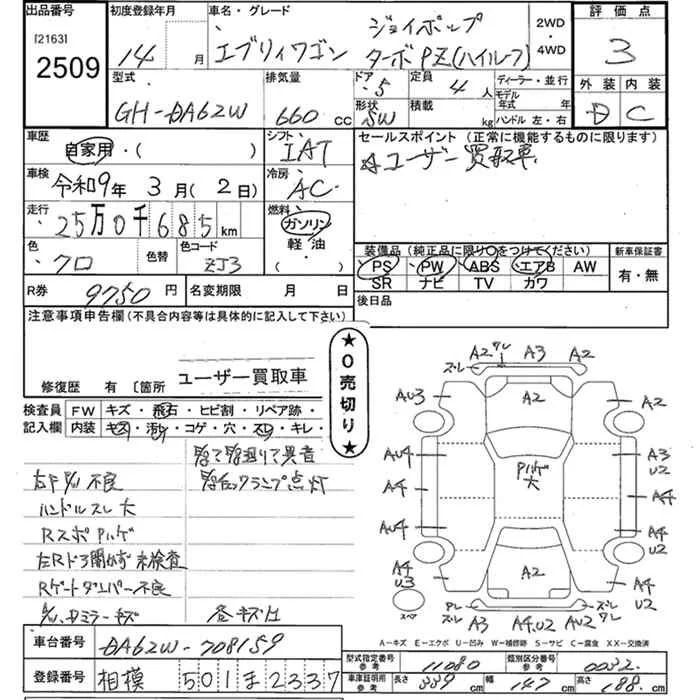 出品番号
[2163]
2509
初度登録年月
14 月
車名・グレード
ジョイポップ
エブリィワゴン ターボPZ(ハイルーフ)
2WD
4WD
評価点
3
外装 内装
D C
型式
GH-DA62W
排気量
660 CC
ドア 5
形状 SW
定員 4 人
積載 kg
ディーラー・並行
モデル
年式 年
ハンドル 左・右
車歴
自家用・( )
シフト
IAT
セールスポイント (正常に機能するものに限ります)
☆ユーザー買取車
車検
令和9年 3月(2日)
冷房
AC
走行
25万0千685km
燃料
ガソリン
軽油
( )
色
クロ
色替
色コード
ZJ3
装備品(純正品に限り○をつけてください)
PS PW ABS エアB AW
SR ナビ TV カワ
新車保証書
有・無
R券 9750円
名変期限 月 日
後日品
注意事項申告欄(不具合内容等は具体的に記入して下さい)
ユーザー買取車
修復歴 有 〔箇所
★0売切り★
検査員
記入欄
FW キズ・飛石・ヒビ割・リペア跡・
内装 キズ・汚れ・コゲ・穴・スレ・キレ・
点灯
不良
ハンドルスレ大
RスポPハゲ
左Rドア開かず未検査
Rゲートダンパー不良
ミラーキズ
各キズ凹
A2 ワレ A3 A2
ズレ
AU3 A2 A2
AU4 A3
U2
Pハゲ
大
A4 A4
AU4 A4
U2
A4
U3 A2 A4
U2
スペア
ズレ A3 A4,U2 AU2 ワレ ズレ
A-キズ E-エクボ U-凹み W-補修跡 S-サビ C-腐食 XX-交換済
車台番号 DA62W-708159
登録番号 相模 501 ま 2337
型式指定番号
参考
11080
類別区分番号
参考
0032
車庫証明用
参考
長さ 339cm 幅 147cm 高さ 188cm